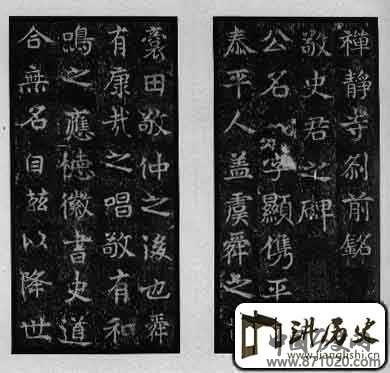 禪静寺刹前銘
敬史君之碑
公名字顯儁平
泰平人盖虞舜之
裔田敬仲之後也舜
有康哉之唱敬有和
鳴之應徳徽書史道
合無名自兹以降世
讲历史
www.jianglishi.cn
www.871020.com